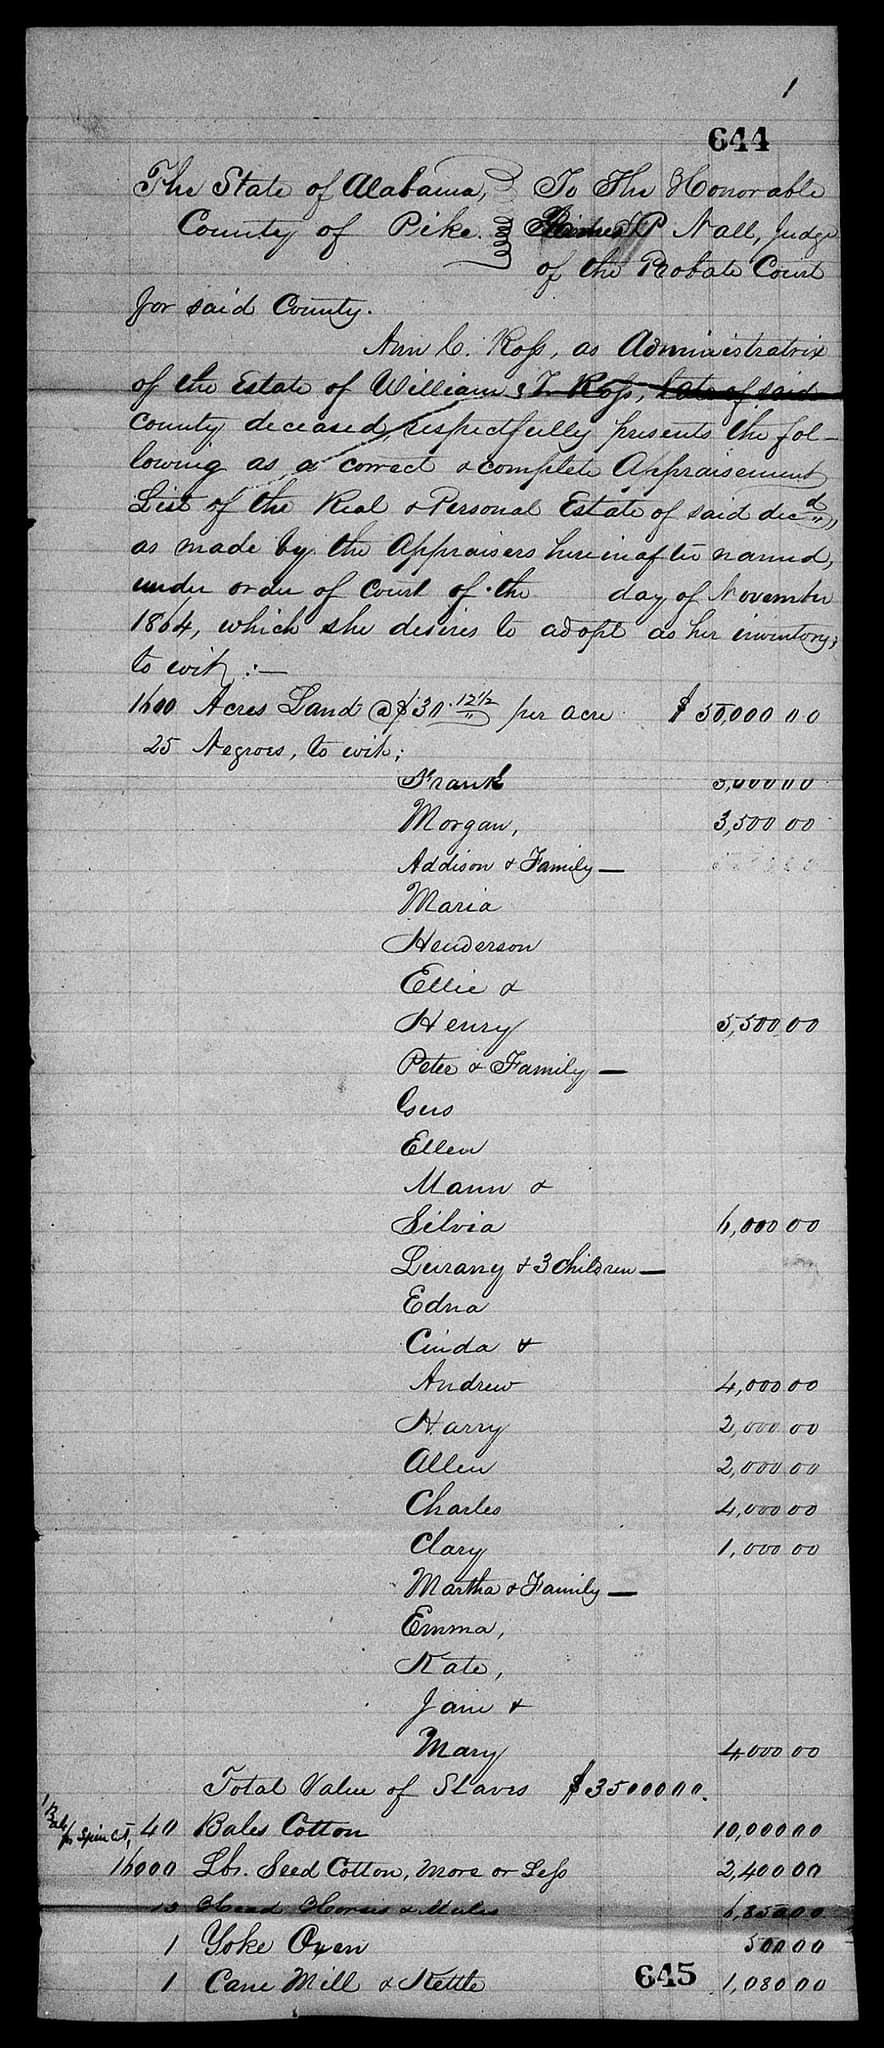 1
644
The State of Alabama, To The Honorable
County of Pike. P Nall, Judge
of the Probate Court
for said County.
Ann C. Ross, as Administratrix
of the Estate of William J. Ross, late of said
county deceased, respectfully presents the fol-
lowing as a correct & complete Appraisement
List of the Real & Personal Estate of said decd,
as made by the Appraisers hereinafter named,
under order of Court of the day of November
1864, which she desires to adopt as her inventory,
to wit:—
1600 Acres Land @ $30.12½ per acre $50,000 00
25 Negroes, to wit;
Frank 3,000 00
Morgan, 3,500 00
Addison & Family—
Maria
Henderson
Ellie &
Henry 5,500 00
Peter & Family—
Gus
Ellen
Mann &
Silvia 6,000 00
& 3 Children—
Edna
Cinda &
Andrew 4,000 00
Harry 2,000 00
Allen 2,000 00
Charles 4,000 00
Clary 1,000 00
Martha & Family—
Emma,
Kate,
Jane &
Mary 4,000 00
Total Value of Slaves $35000 00.
40 Bales Cotton 10,000 00
16000 Lbs. Seed Cotton, More or Less 2,400 00
Head Horses & Mules 6,850 00
1 Yoke Oxen 500 00
1 Cane Mill & Kettle 1,080 00
645